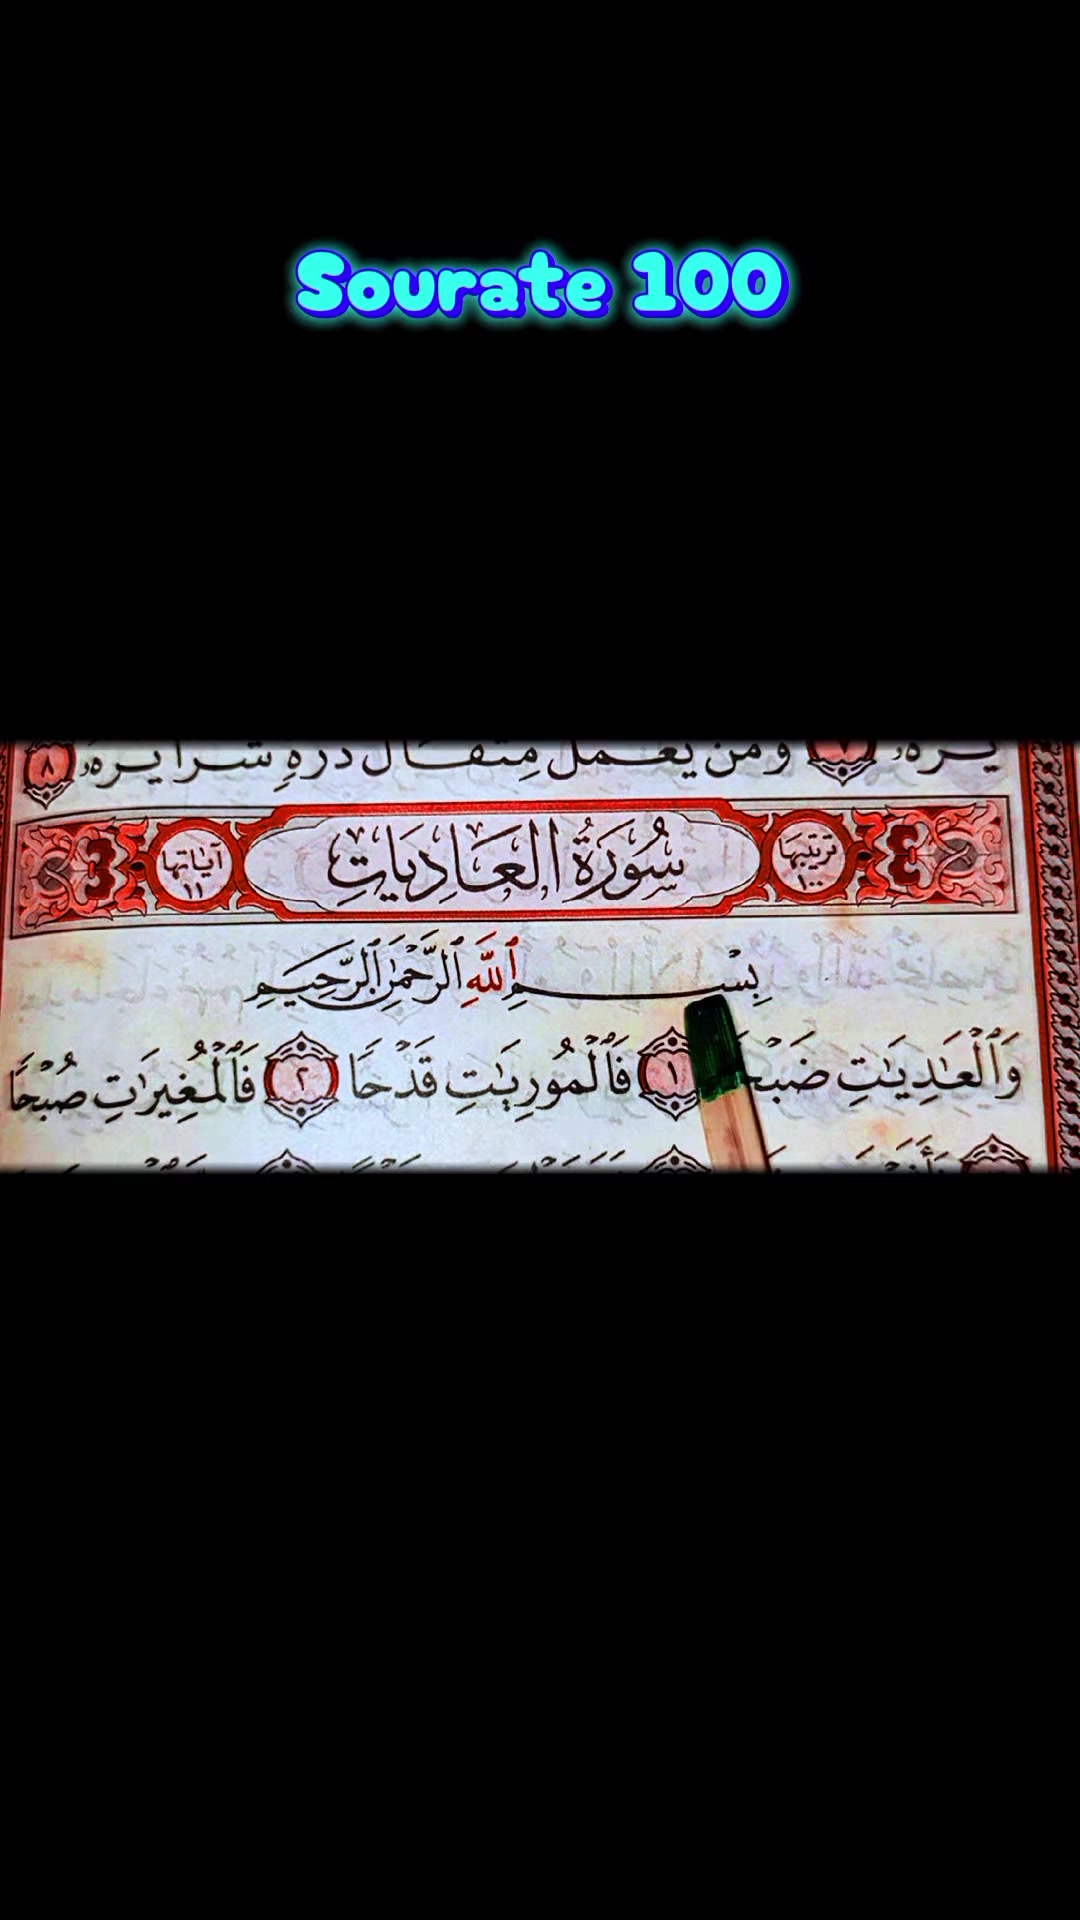 Sourate 100
يَرَهُۥ ٧ وَمَن يَعْمَلْ مِثْقَالَ ذَرَّةٍ شَرًّا يَرَهُۥ ٨
ترتيبها ١٠٠ سُورَةُ العَادِيَاتِ آياتها ١١
بِسْمِ ٱللَّهِ ٱلرَّحْمَٰنِ ٱلرَّحِيمِ
وَٱلْعَٰدِيَٰتِ ١ فَٱلْمُورِيَٰتِ قَدْحًا ٢ فَٱلْمُغِيرَٰتِ صُبْحًا